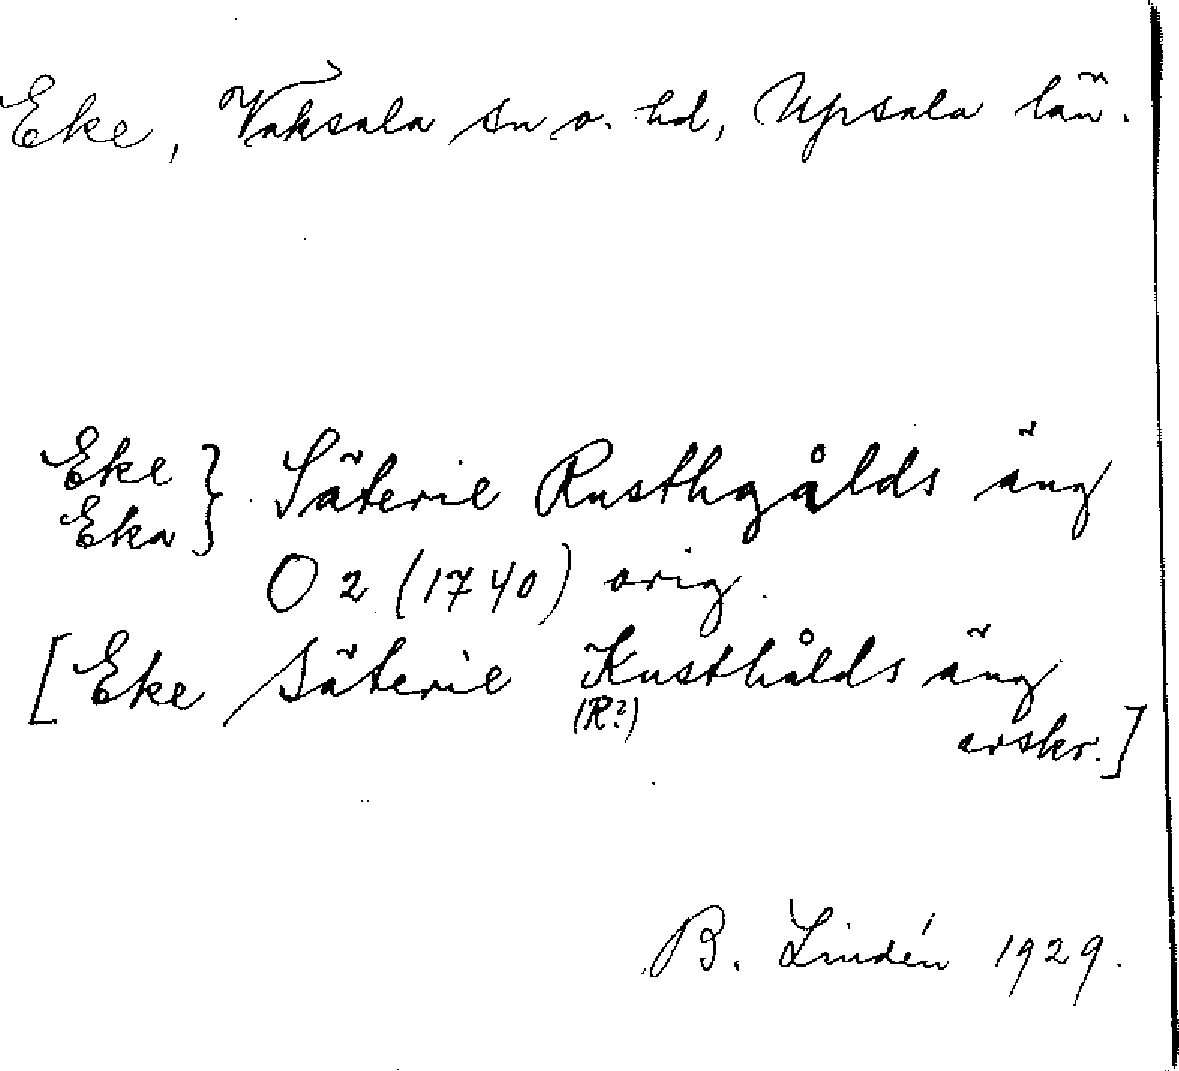 Eke, Vaksala sn o. hd, Upsala län.
Eke } Säterie Rusthgålds äng
Eka
O 2 (1740) orig.
[Eke Säterie Kusthålds äng
(R?)
avskr.]
B. Lindén 1929.